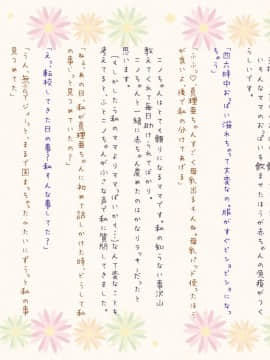 いちもんなママのおっぱいを飲ませたほうが赤ちゃんの免疫がつく
らしいです。
「四六時中おっぱい溢れちゃって大変なの、服がすぐビショビショになっ
「ふふ♡真理亜ちゃんすっごく母乳出るもんね。母乳パッド使ったほう
が良いよ、後で私の分けてあげる」
ニノちゃんはとても頼りになるママです。私の知らない事沢山
教えてくれて毎日助けられてばかり。
ニノちゃんと一緒に赤ちゃん産めたのはかなりラッキーだったと
思います。
（もしかしたら私のママよりママっぽいかも…）なんて変なことを
考えてると、ふとニノちゃんが小さな声で私に質問してきました。
「ねぇ、あの日、私が真理亜ちゃんに初めて話しかけた時、どうして私
の事じっと見つめていたの？」
「え？転校してきた日の事？私そんな事してた？」
「うん、無言でジィっと、まるで固まっちゃったみたいにずうっと私の事
見つめてた。」